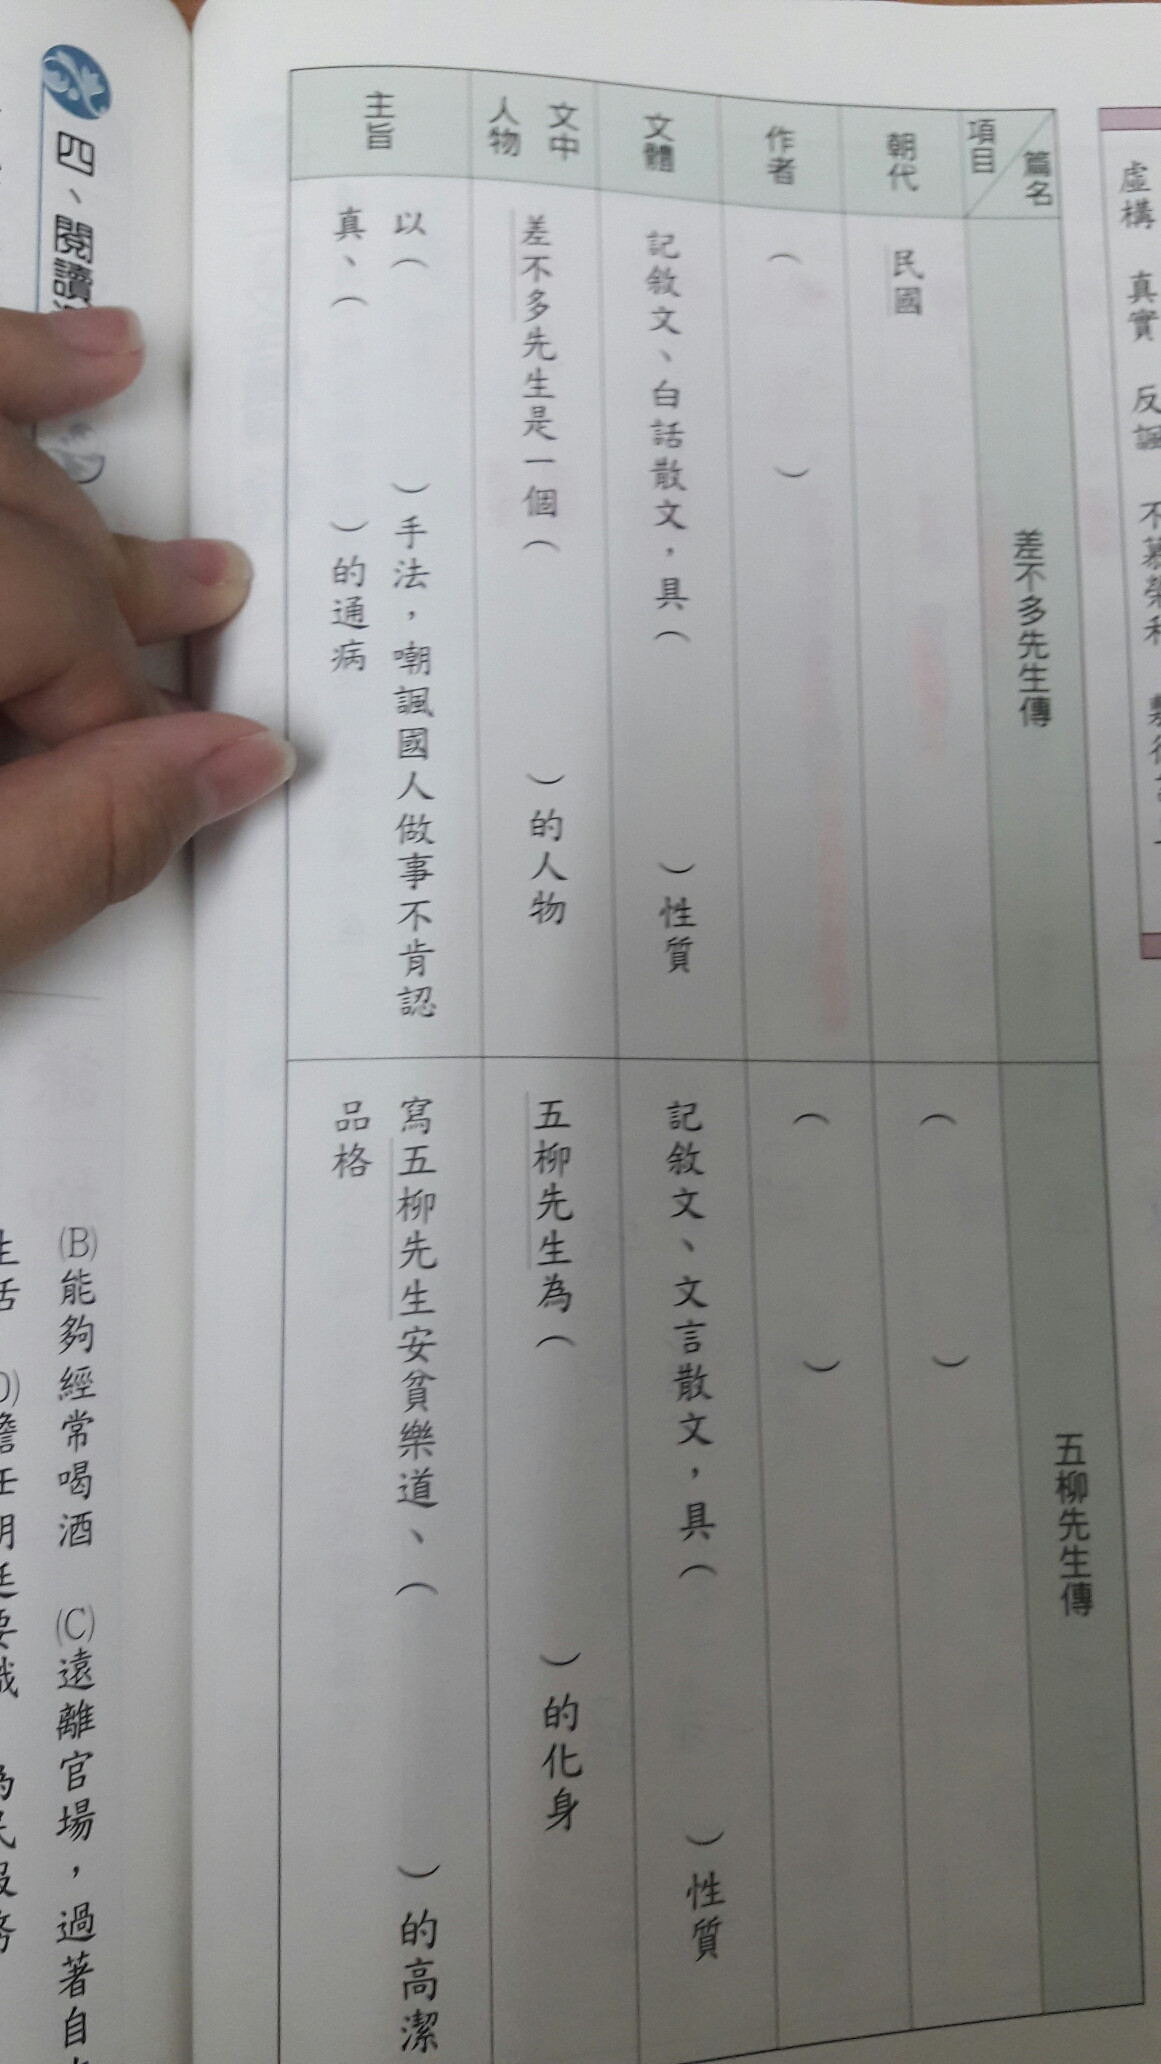 虛構 真實 反諷 不慕榮利
篇名
項目
差不多先生傳
五柳先生傳
朝代
民國
( )
作者
( )
( )
文體
記敘文、白話散文，具( )性質
記敘文、文言散文，具( )性質
文中
人物
差不多先生是一個( )的人物
五柳先生為( )的化身
主旨
以( )手法，嘲諷國人做事不肯認
真、( )的通病
寫五柳先生安貧樂道、( )的高潔
品格
四、閱讀
(B)能夠經常喝酒 (C)遠離官場，過著自